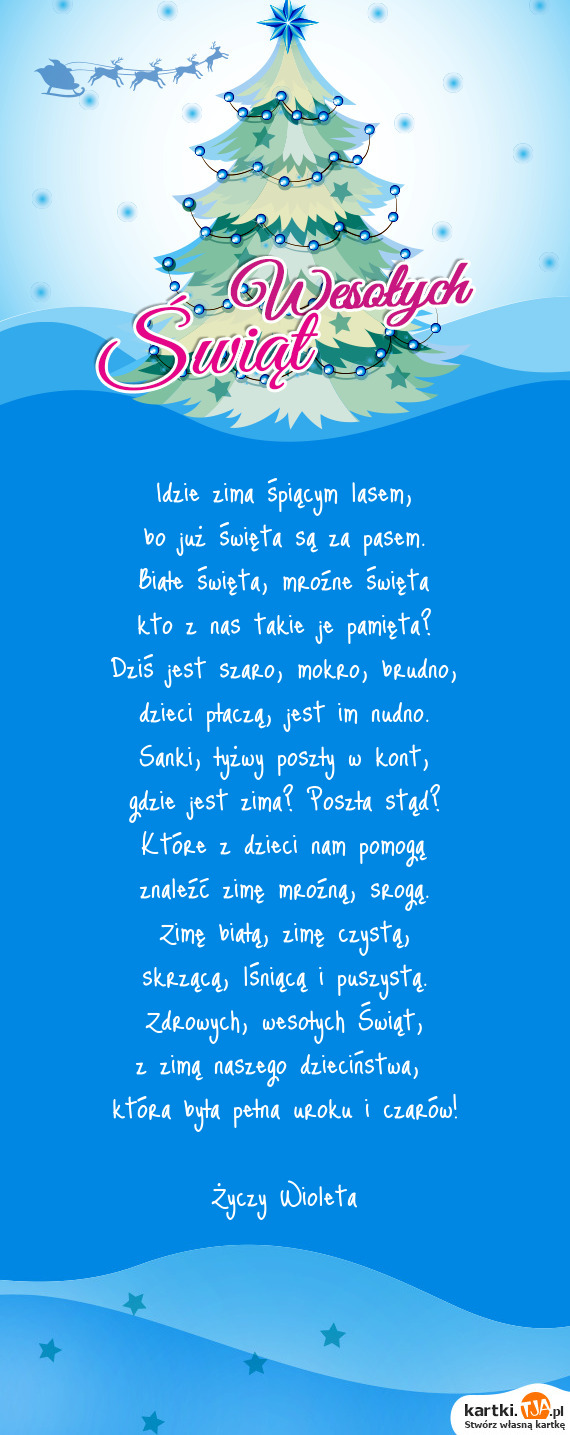 Wesołych
Świąt
Idzie zima śpiącym lasem,
bo już święta są za pasem.
Białe święta, mroźne święta
kto z nas takie je pamięta?
Dziś jest szaro, mokro, brudno,
dzieci płaczą, jest im nudno.
Sanki, łyżwy poszły w kont,
gdzie jest zima? Poszła stąd?
Które z dzieci nam pomogą
znaleźć zimę mroźną, srogą.
Zimę białą, zimę czystą,
skrzącą, lśniącą i puszystą.
Zdrowych, wesołych Świąt,
z zimą naszego dzieciństwa,
która była pełna uroku i czarów!
Życzy Wioleta
kartki.TJA.pl
Stwórz własną kartkę